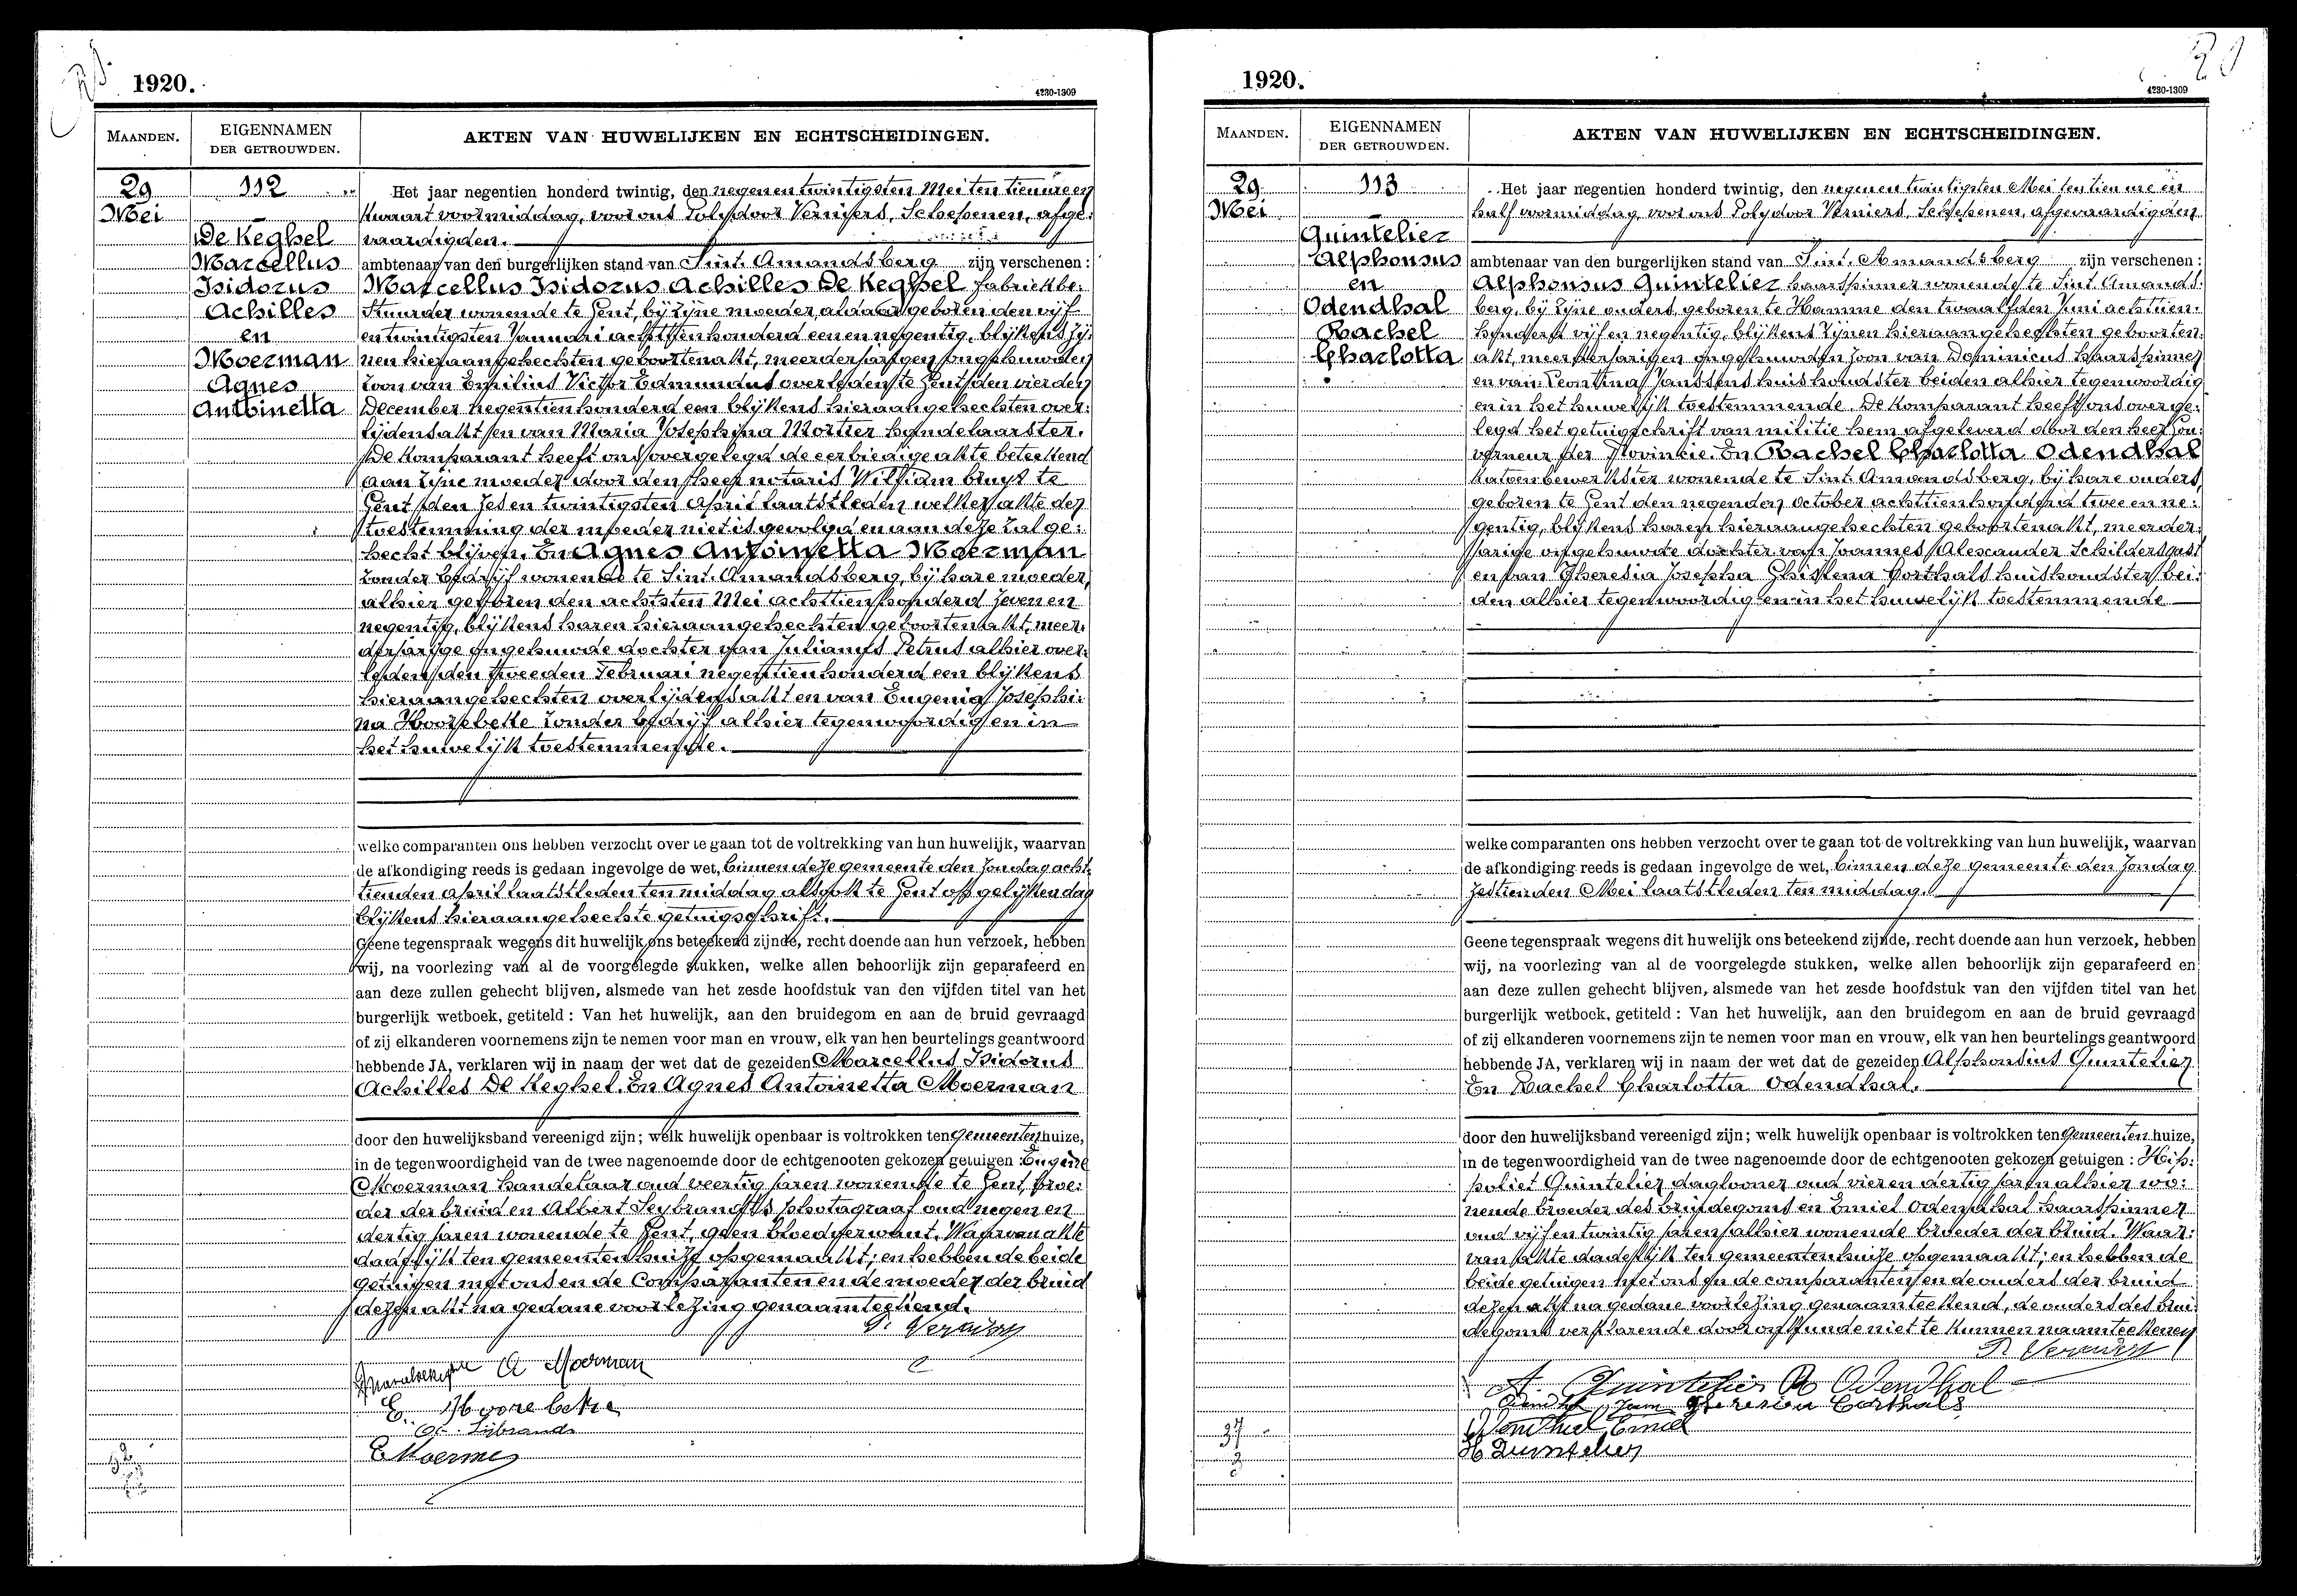 1920.
4230-1309
MAANDEN.
EIGENNAMEN
DER GETROUWDEN.
AKTEN VAN HUWELIJKEN EN ECHTSCHEIDINGEN.
29
Mei
112
De Keghel
Marcellus
Isidorus
Achilles
en
Moerman
Agnes
Antoinetta
Het jaar negentien honderd twintig, den negenentwintigsten Mei ten tien ure en
kwaart voormiddag, voor ons Polydoor Verniers, Schepenen, afge-
vaardigden.
ambtenaar van den burgerlijken stand van Sint-Amandsberg zijn verschenen :
Marcellus Isidorus Achilles De Keghel fabriekbe-
stuurder wonende te Gent, bij zijne moeder, aldaar geboren den vijf
en twintigsten Januari achttienhonderd een en negentig, blijkens zij-
nen hieraangehechten geboortenakt, meerderjarigen ongehuwden
zoon van Emilius Victor Edmundus overleden te Gent den vierden
December negentienhonderd een blijkens hieraangehechten over-
lijdensakt en van Maria Josephina Mortier handelaarster.
De komparant heeft ons overgelegd de eerbiedige akte beteekend
aan zijne moeder door den heer notaris William Bruyt te
Gent den zesentwintigsten April laatstleden welker akte der
toestemming der moeder niet is gevolgd en aan deze zal ge-
hecht blijven. En Agnes Antoinetta Moerman
zonder bedrijf wonende te Sint-Amandsberg, bij hare moeder,
alhier geboren den achtsten Mei achttienhonderd zeven en
negentig, blijkens haren hieraangehechten geboortenakt, meer-
derjarige ongehuwde dochter van Julianus Petrus alhier over-
leden den tweeden Februari negentienhonderd een blijkens
hieraangehechten overlijdensakt en van Eugenia Josephi-
na Hoorebeke zonder bedrijf alhier tegenwoordig en in
het huwelijk toestemmende.
welke comparanten ons hebben verzocht over te gaan tot de voltrekking van hun huwelijk, waarvan
de afkondiging reeds is gedaan ingevolge de wet, binnen deze gemeente den zondag acht-
tienden April laatstleden ten middag alsook te Gent op gelijken dag
blijkens hieraangehechte getuigschrift.
Geene tegenspraak wegens dit huwelijk ons beteekend zijnde, recht doende aan hun verzoek, hebben
wij, na voorlezing van al de voorgelegde stukken, welke allen behoorlijk zijn geparafeerd en
aan deze zullen gehecht blijven, alsmede van het zesde hoofdstuk van den vijfden titel van het
burgerlijk wetboek, getiteld : Van het huwelijk, aan den bruidegom en aan de bruid gevraagd
of zij elkanderen voornemens zijn te nemen voor man en vrouw, elk van hen beurtelings geantwoord
hebbende JA, verklaren wij in naam der wet dat de gezeiden Marcellus Isidorus
Achilles De Keghel. En Agnes Antoinetta Moerman
door den huwelijksband vereenigd zijn; welk huwelijk openbaar is voltrokken ten Gemeentenhuize,
in de tegenwoordigheid van de twee nagenoemde door de echtgenooten gekozen getuigen : Eugène
Moerman handelaar oud veertig jaren wonende te Gent, broe-
der der bruid en Albert Seybrandts photograaf oud negen en
dertig jaren wonende te Gent, geen bloedverwant. Waarvan akte
dadelijk ten gemeentenhuize opgemaakt; en hebben de beide
getuigen met ons en de Comparanten en de moeder der bruid
dezen akt na gedane voorlezing genaamteekend.
A Moerman
E. Hoorebeke
E Moerman
1920.
4230-1309
MAANDEN.
EIGENNAMEN
DER GETROUWDEN.
AKTEN VAN HUWELIJKEN EN ECHTSCHEIDINGEN.
29
Mei
113
Quintelier
Alphonsus
en
Odendhal
Rachel
Charlotta
Het jaar negentien honderd twintig, den negenentwintigsten Mei ten tien ure en
half voormiddag, voor ons Polydoor Verniers, Schepenen, afgevaardigden
ambtenaar van den burgerlijken stand van Sint-Amandsberg zijn verschenen :
Alphonsus Quintelier haarspinner wonende te Sint Amands-
berg, bij zijne ouders, geboren te Hamme den twaalfden Juni achttien-
honderd vijf en negentig, blijkens zijnen hieraangehechten geboorten-
akt, meerderjarigen ongehuwden zoon van Dominicus haarspinner
en van Leontina Janssens huishoudster beiden alhier tegenwoordig
en in het huwelijk toestemmende. De komparant heeft ons overge-
legd het getuigschrift van militie hem afgeleverd door den heer Gou-
verneur der Provincie. En Rachel Charlotta Odendhal
katoenbewerkster wonende te Sint-Amandsberg, bij hare ouders,
geboren te Gent den negenden October achttienhonderd twee en ne-
gentig, blijkens haren hieraangehechten geboortenakt, meerder-
jarige ongehuwde dochter van Joannes Alexander Schildersgast
en van Theresia Josepha Ghislena Corthals huishoudster bei-
den alhier tegenwoordig en in het huwelijk toestemmende
welke comparanten ons hebben verzocht over te gaan tot de voltrekking van hun huwelijk, waarvan
de afkondiging reeds is gedaan ingevolge de wet, binnen deze gemeente den Zondag
zestienden Mei laatstleden ten middag.
Geene tegenspraak wegens dit huwelijk ons beteekend zijnde, recht doende aan hun verzoek, hebben
wij, na voorlezing van al de voorgelegde stukken, welke allen behoorlijk zijn geparafeerd en
aan deze zullen gehecht blijven, alsmede van het zesde hoofdstuk van den vijfden titel van het
burgerlijk wetboek, getiteld : Van het huwelijk, aan den bruidegom en aan de bruid gevraagd
of zij elkanderen voornemens zijn te nemen voor man en vrouw, elk van hen beurtelings geantwoord
hebbende JA, verklaren wij in naam der wet dat de gezeiden Alphonsius Quintelier
En Rachel Charlotta Odendhal.
door den huwelijksband vereenigd zijn; welk huwelijk openbaar is voltrokken ten Gemeentenhuize,
in de tegenwoordigheid van de twee nagenoemde door de echtgenooten gekozen getuigen : Hip-
poliet Quintelier dagloner oud vier en dertig jaren alhier wo-
nende broeder des bruidegoms en Emiel Odendhal haarspinner
oud vijf en twintig jaren alhier wonende broeder der bruid. Waar-
van akte dadelijk ten gemeentenhuize opgemaakt; en hebben de
beide getuigen met ons en de comparanten en de ouders der bruid
dezen akt na gedane voorlezing genaamteekend, de ouders des brui-
degoms verklarende door onkunde niet te kunnen naamteekenen
A. Quintelier R Odendhal
Theresia Corthals
Odendhal Emiel
H Quintelier
37
3